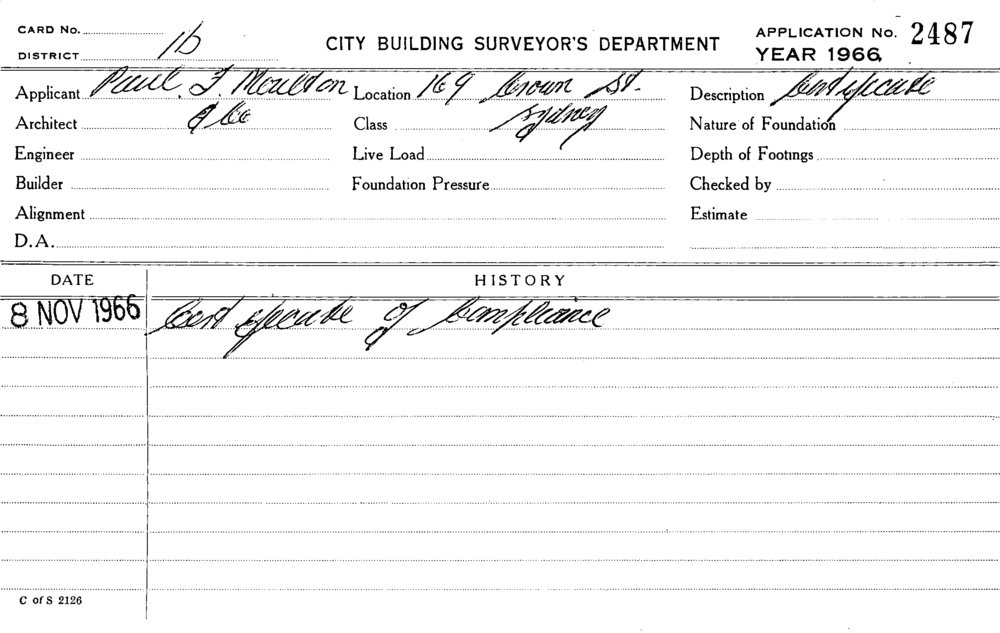 CARD No.
DISTRICT 1b
CITY BUILDING SURVEYOR'S DEPARTMENT
APPLICATION No. 2487
YEAR 1966
Applicant Paul F. Moulton Location 169 Crown St. Description Certificate
Architect & Co Class Sydney Nature of Foundation
Engineer Live Load Depth of Footings
Builder Foundation Pressure Checked by
Alignment Estimate
D.A.
DATE HISTORY
8 NOV 1966 Certificate of Compliance
C of S 2126